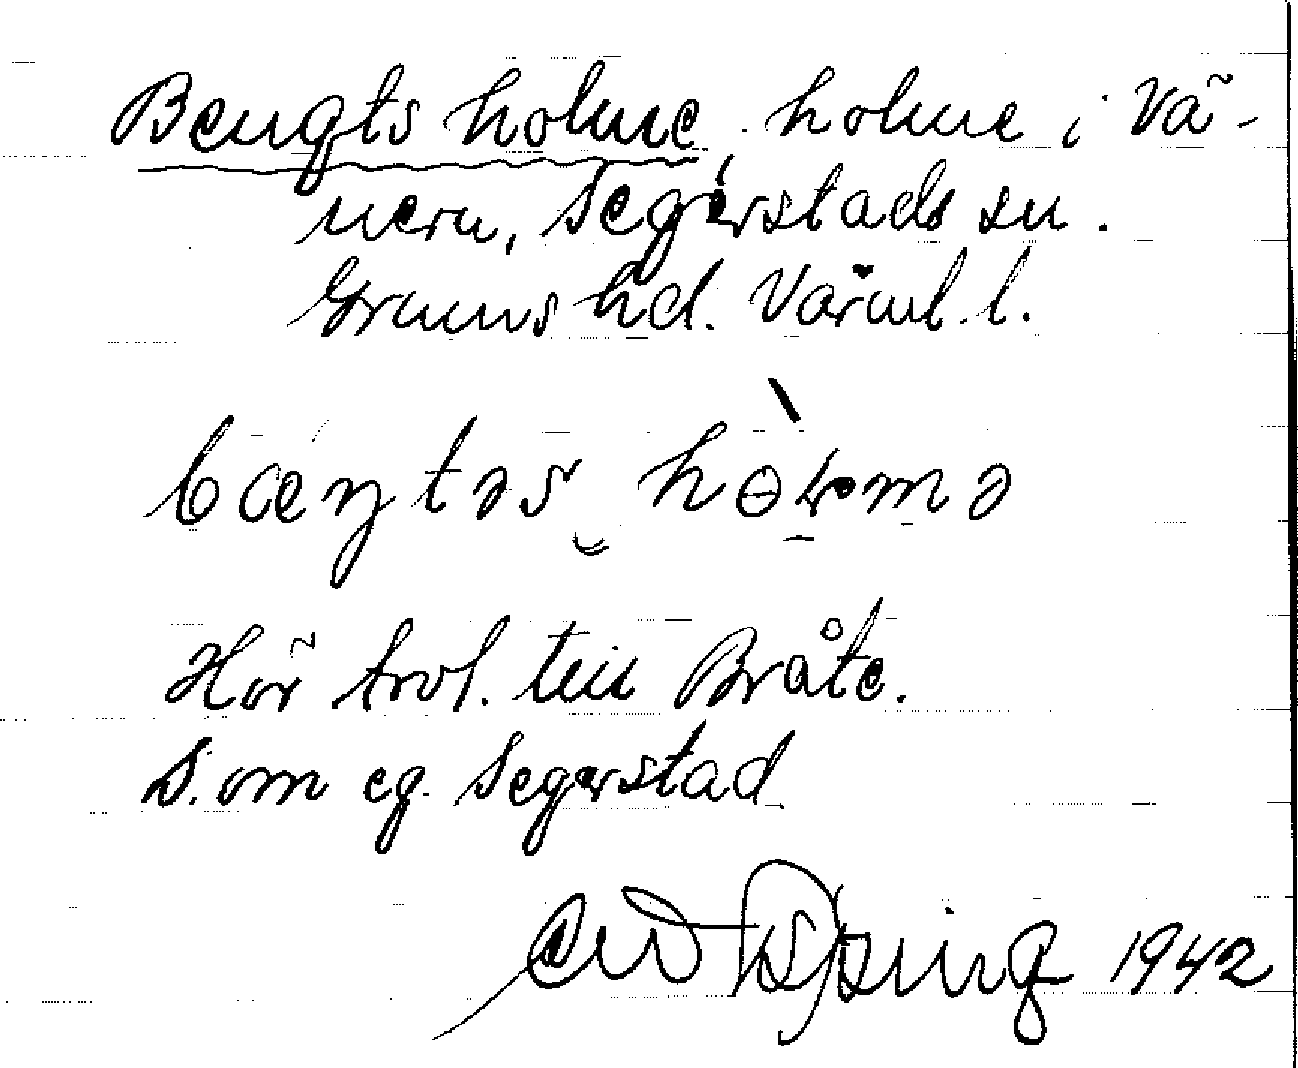 Bengts holme, holme i Vä-
nern, Segerstads sn.
Grums hd. Värml. l.
bæŋtəs hɵ̀ɽmə
Hör trol. till Bråte.
S. om eg. Segerstad
1942